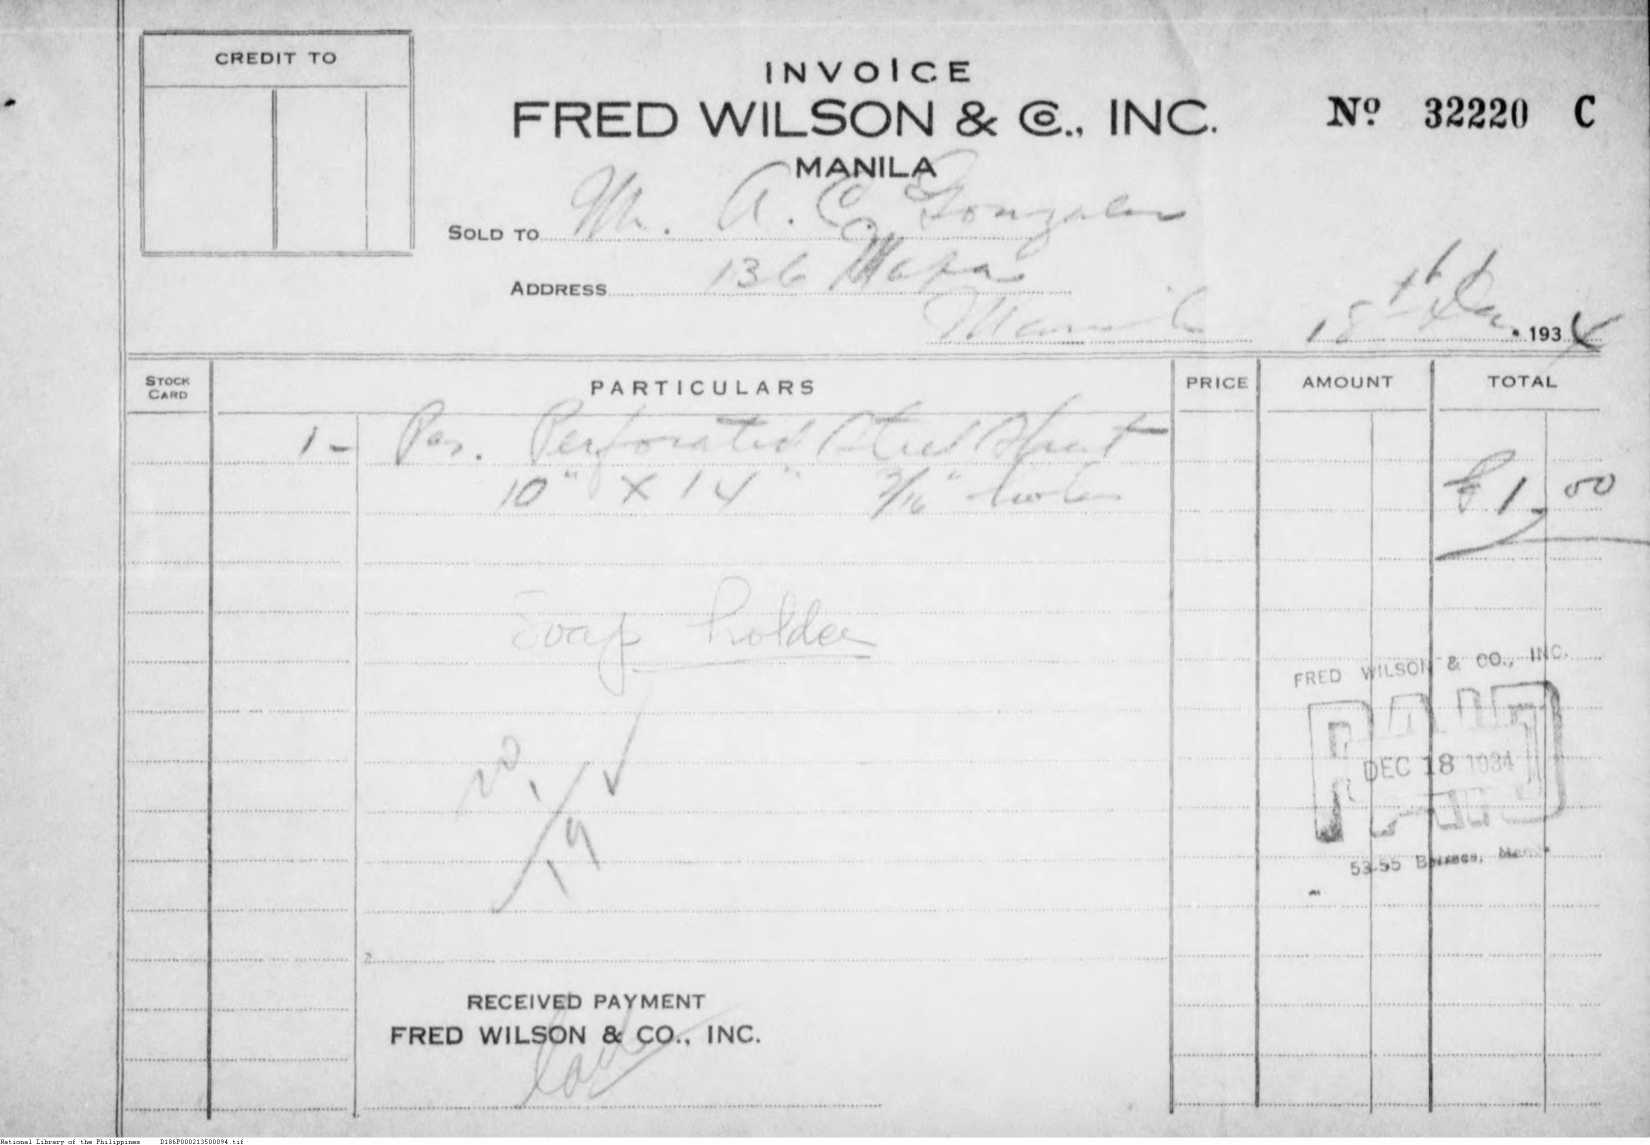 CREDIT TO
INVOICE
FRED WILSON & CO., INC.
MANILA
Nº 32220 C
SOLD TO Mr. A. C. Gonzalez
ADDRESS 136 Mapa
Manila 18th Dec. 1934
STOCK CARD PARTICULARS PRICE AMOUNT TOTAL
1- Pcs. Perforated Steel Sheet
10" X 14" 3/16" holes ₱1.00
Soap holder
FRED WILSON & CO., INC.
PAID
DEC 18 1934
53-55
RECEIVED PAYMENT
FRED WILSON & CO., INC.
National Library of the Philippines D186P000213500094.tif